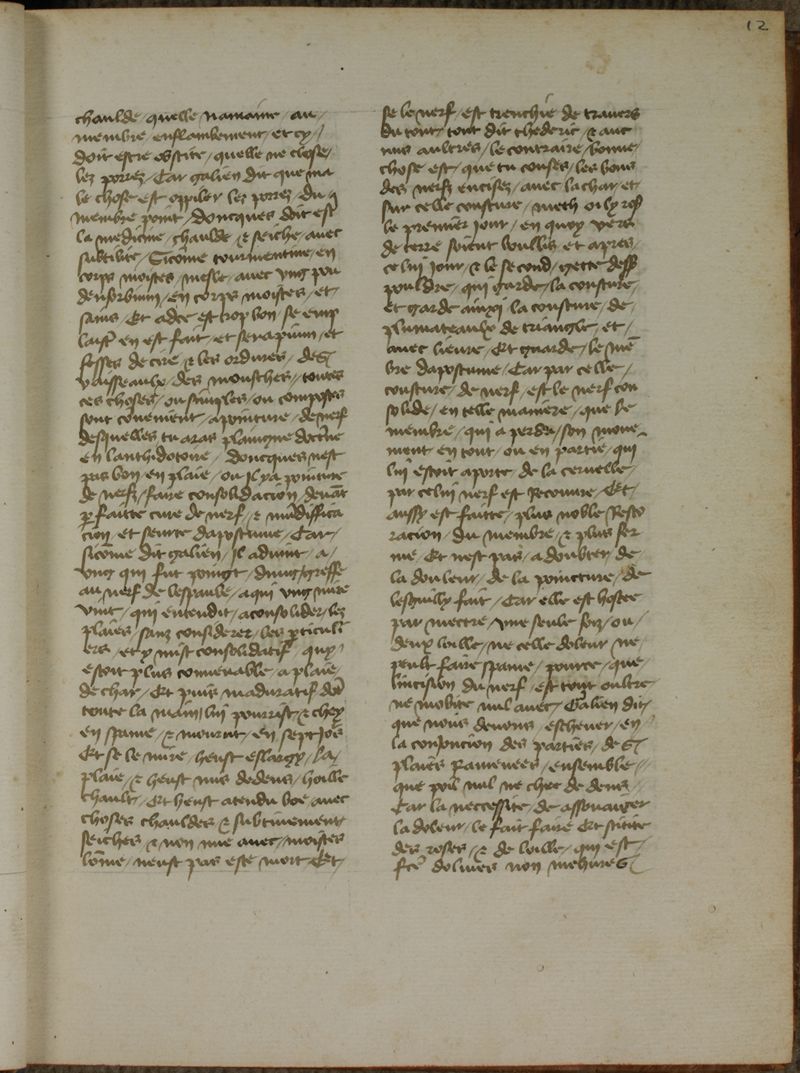 12
chaulde / quelle namaine / au /
membre enflambement / et cy /
doit estre obstite / quelle ne close /
lez porrez / Car galien dit que ma
le chose est oppiler les porrez / du q̄
membre point / doncques doit est̄
la medicine / chaulde / & seiche / avec
subtilite / Sicome tourmentine / en
corps moistes / mesle / avec ung pou
deuforbium / en corps moistes / et /
sains / Et adec est trop bon / se emp
laist̄ en est fait / et serapium / et
fesses de cire / & les ordures / des
vaisseaulx / des mousches / toutes
ces choses / ou simples / ou composes
sont convenient / a pointure / de nerf
desquelles tu aras plaingne doctͥne
en lanthidotoire / doncques nest
pas bon / en plaie / ou il ya pointure
de nerfz / faire consolidacion / devāt
p̲faitte cure de nerf / & mūdiffica
cion / et seurte dapostume / Car /
sicōme dit galien / Il advint / a /
ung qui fut poingt / dung greffe
au nerf de lespaule / a qui ung mire
vint / qui entendit / a consolider / lez
plaies / sanz considerer / les p̲ticuli
ers / et y mist consolidatif / quy
estoit plus convenable / a plaie /
de char / Et puis maduratif dōt
toute la main / lui pourrist / & chey
en spame / & mourut / en sept Jo's
Et se le mire / heust eslargy / la /
plaie / & heust mis dedens / hoille
chault / Et heust atendu boē avec
choses chauldes & subtivement
seiches & non mie avec / moistes
lōme / neust pas este mort / Et /
se le nerf / est trenchie de travers
du tout / tout dit thederic / & avec
mis aultres / le contraire / bonne /
chose est / que tu couses / les bous
des nerfz encisez / avec la char / et
sur celle cousture / meth oilz ros̄
le premier jour / en quoy vers
de terre soient boullis / et apres /
celui jour / & le second / gette dess̄
pouldre / qui garde / la cousture /
et garde ainxi la cousture / de /
plumateaulx de triangle / et /
avec lieure / Et guarde / le mē
bre dapostume / Car par celle /
cousture / de nerf / est le nerf con
solide / en telle maniere / que le
membre / qui a perdu / son mouve
ment / en tout / ou en partie / qui
lui estoit aporte / de la cervelle /
par celui nerf est Recouvre / Et /
aussy est faitte / plus noble Resto
racion / du membre / & plus fer
me / Et nest pas / a doubter / de
la douleur / de la pointture / de
lesguille fait / Car elle est hostee
par mectre / une seule foiz / ou /
deux loille / ne celle doleur / ne
peult faire spame / pource / que /
lincision du nerf / est tout oultre /
ne mobite nul avec / Galien dit /
que nous devons / eschever / en /
la conjoncion des parties / de
plaies Ramenees / ensemble /
que poil nul ne chee de dens /
Car la neccessite / de assouaigier
la doleur / le fait faire Et stitite
des roses / & de loille / qui est /
fce dolives non meures